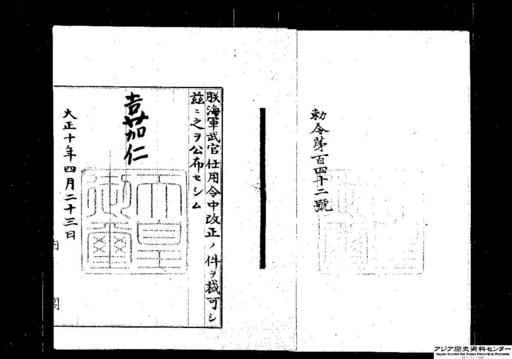 勅令第百四十二號
朕海軍武官任用令中改正ノ件ヲ裁可シ
茲ニ之ヲ公布セシム
嘉仁
天皇御璽
大正十年四月二十三日
内閣
アジア歴史資料センター
Japan Center for Asian Historical Records